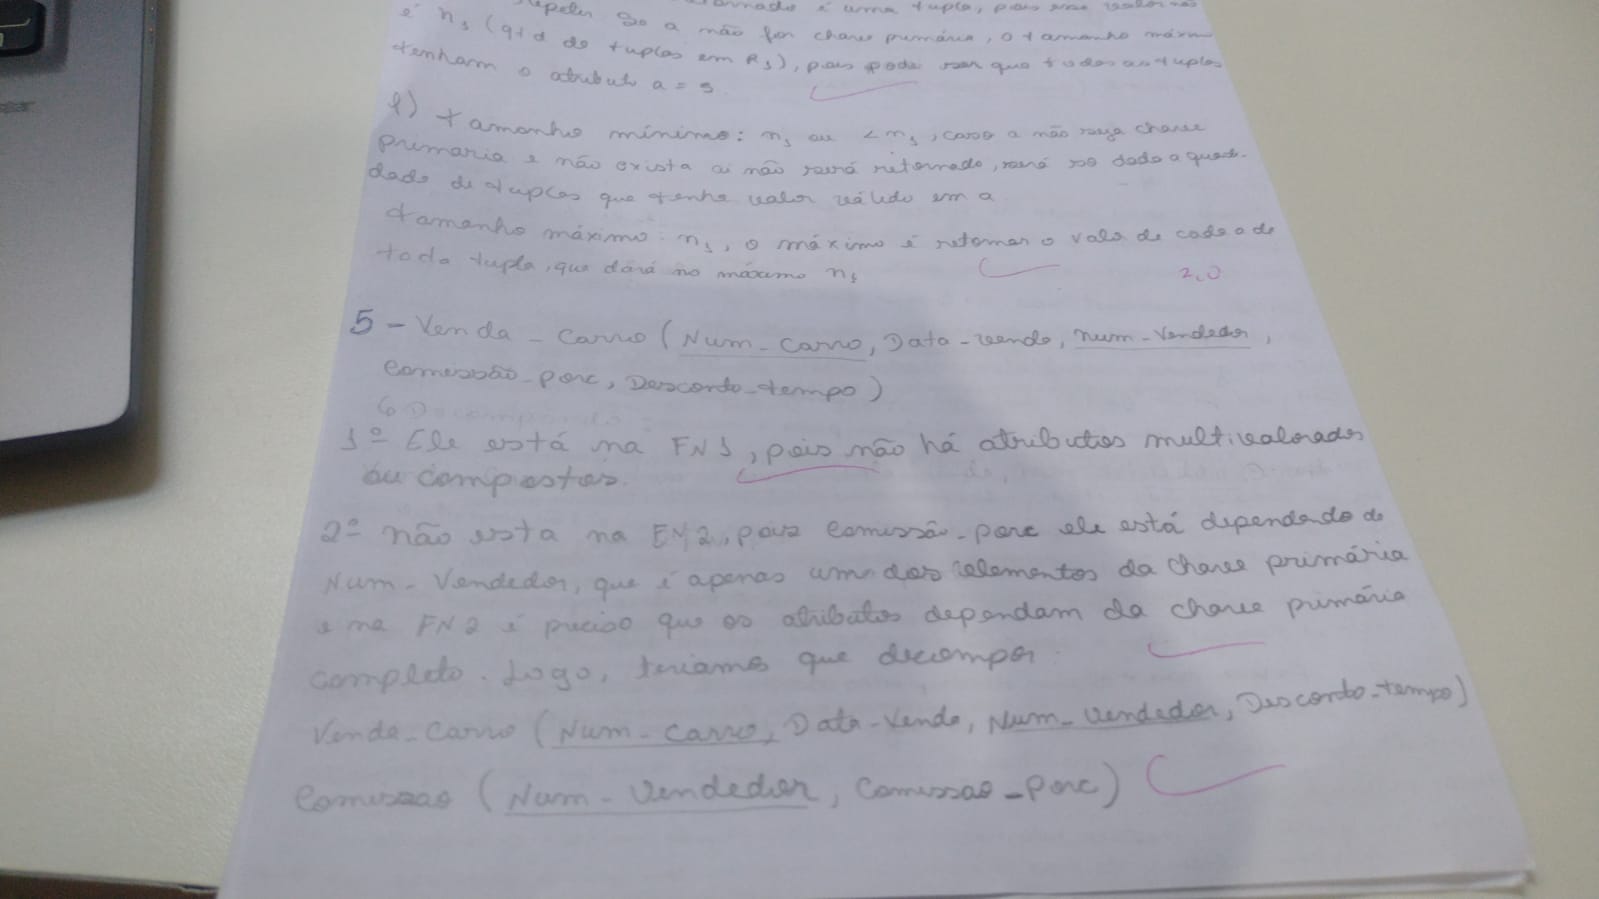 é uma tupla, pois esse valor não
é n₁ (qtd de tuplas em R₁), pois pode ser que todas as tuplas
repetir So a não for chave primária, o tamanho máximo
tenham o atributo a = 5
f) tamanho mínimo: n₁ ou < n₁, caso a não seja chave
primaria e não exista ai não será retornado, será só dado a quanti-
dade de tuplas que tenha valor válido em a
tamanho máximo: n₁, o máximo é retornar o valor de cada a de
toda tupla, que dará no máximo n₁
2,0
5 - Venda_Carro (Num_Carro, Data_venda, Num_Vendedor,
Comissão_porc, Desconto_tempo)
1º Ele está na FN1, pois não há atributos multivalorados
ou compostos.
2º não esta na FN2, pois comissão_porc ele está dependendo de
Num_Vendedor, que é apenas um dos elementos da chave primária
e na FN2 é preciso que os atributos dependam da chave primária
completo. Logo, teriamos que decompor.
Venda_Carro (Num_Carro, Data_Venda, Num_Vendedor, Desconto_tempo)
Comissao (Num_Vendedor, Comissao_Porc)